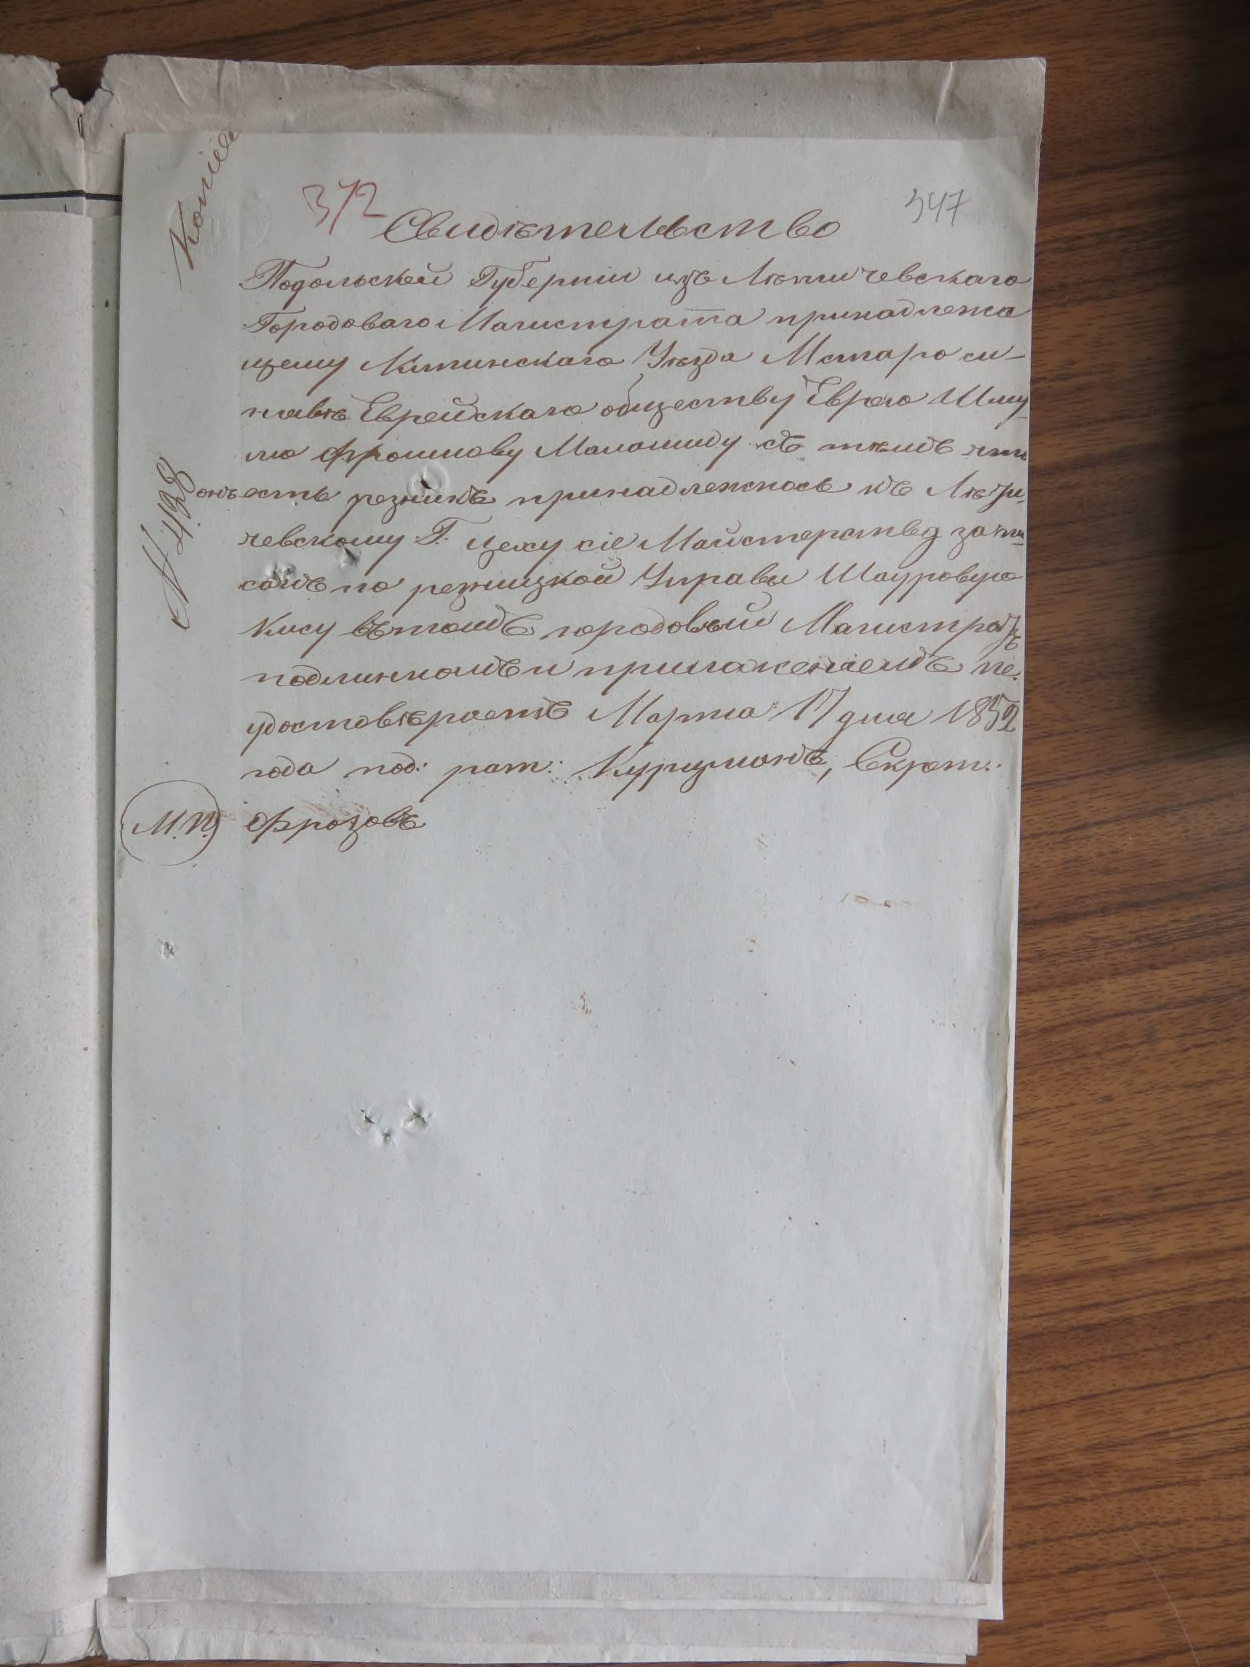 Копiя
372
347
Свидѣтельство
Подольской Губернiи изъ Летичевскаго
Городоваго Магистрата принадлежа
щему Литинскаго Уѣзда М старо си-
нявѣ Еврейскаго обществу Еврею Шму
лю Фроимову Маламиду въ томъ что
онъ есть резникъ принадлежность къ Лети-
чевскому Г. цеху сiе Майстерство запи-
санъ по резницкой Управы
въ томъ городовый Магистратъ
подписомъ и приложенiемъ пе.
удостовѣряетъ Марта 17 дня 1852
года под: рат: Курцманъ, Секрет.:
М.П. Фрозовъ
№ 428